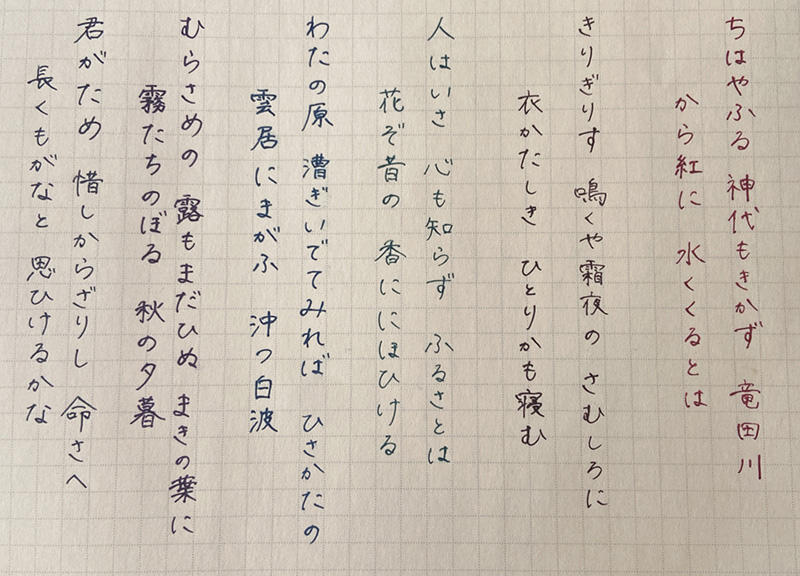 ちはやふる 神代もきかず 竜田川
から紅に 水くくるとは
きりぎりす 鳴くや霜夜の さむしろに
衣かたしき ひとりかも寝む
人はいさ 心も知らず ふるさとは
花ぞ昔の 香ににほひける
わたの原 漕ぎいでてみれば ひさかたの
雲居にまがふ 沖つ白波
むらさめの 露もまだひぬ まきの葉に
霧たちのぼる 秋の夕暮
君がため 惜しからざりし 命さへ
長くもがなと 思ひけるかな